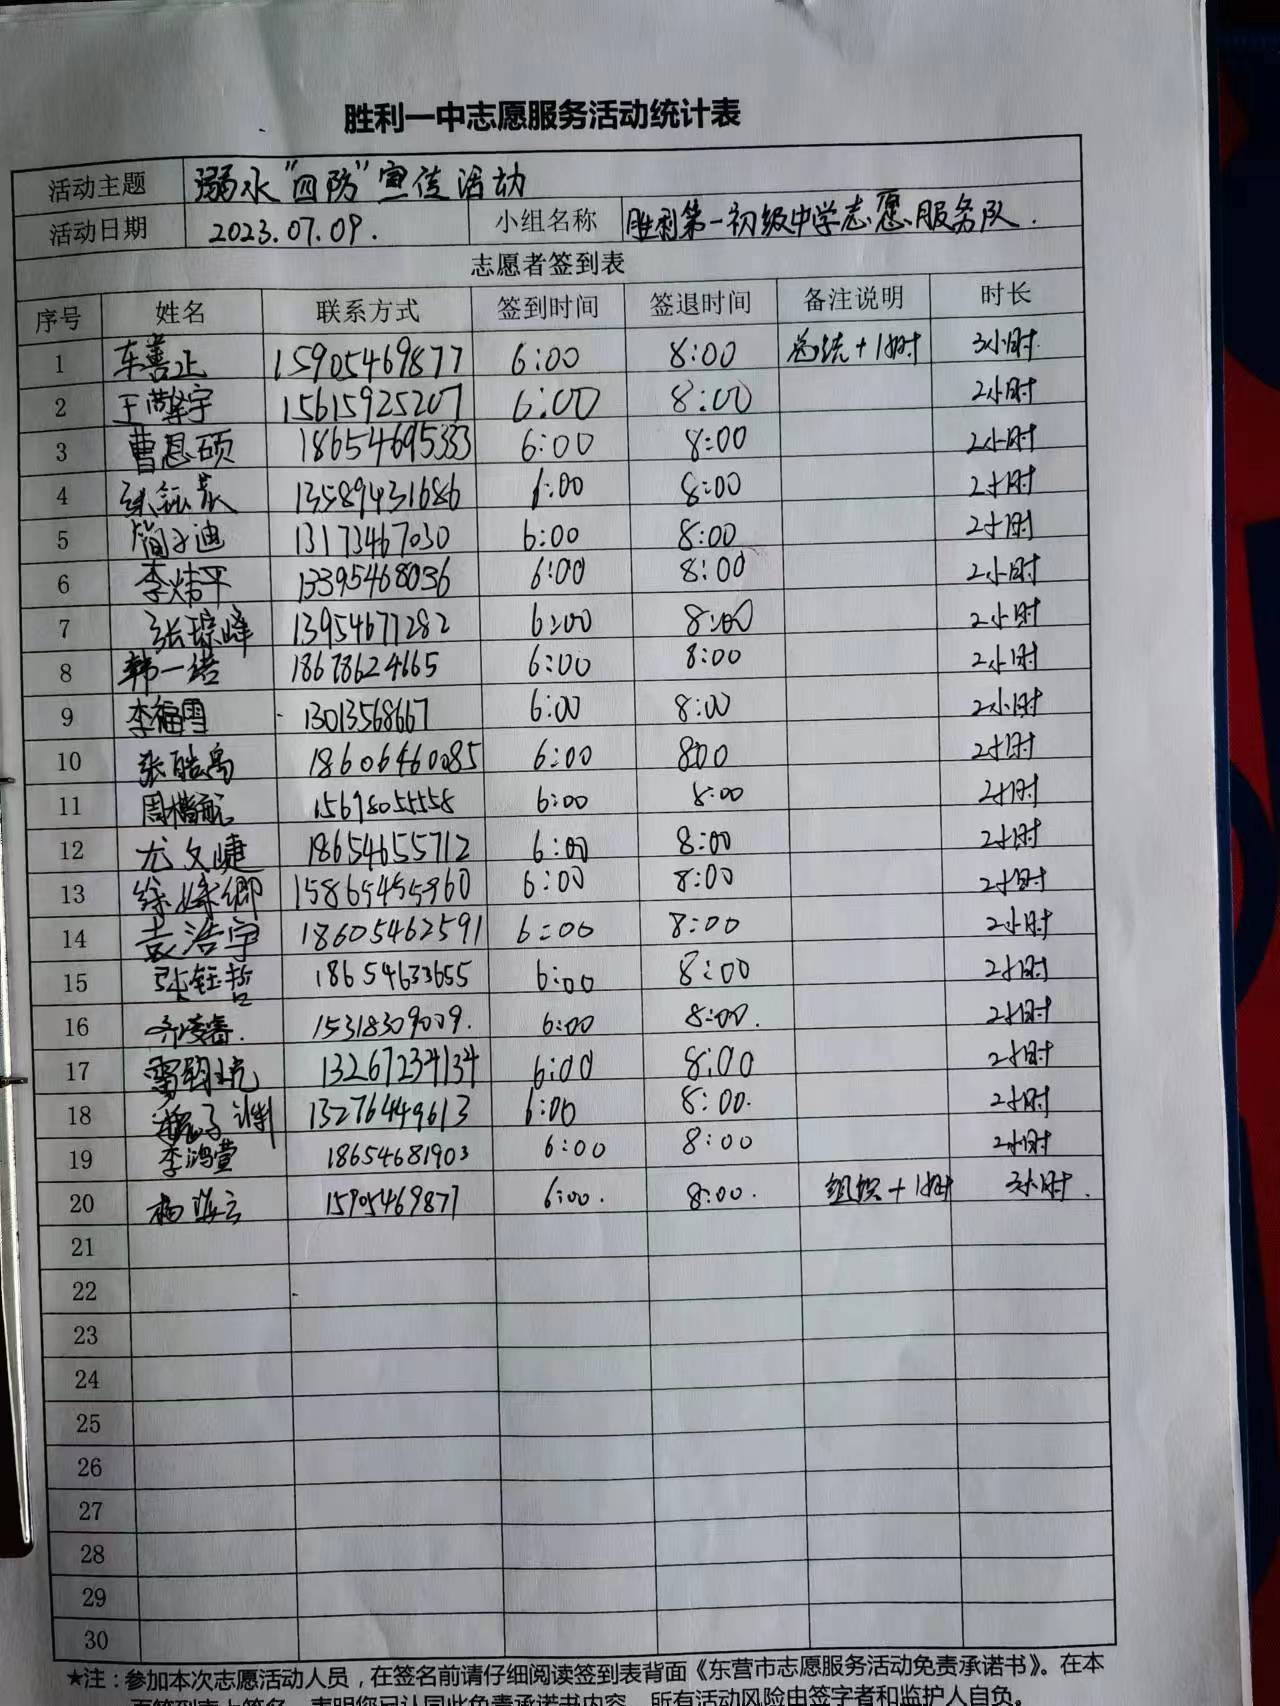 胜利一中志愿服务活动统计表
活动主题 溺水“四防”宣传活动
活动日期 2023.07.09. 小组名称 胜利第一初级中学志愿服务队.
志愿者签到表
序号 姓名 联系方式 签到时间 签退时间 备注说明 时长
1 车善止 15905469877 6:00 8:00 总结+1小时 3小时
2 王馨宇 15615925207 6:00 8:00 2小时
3 曹恩硕 18654695333 6:00 8:00 2小时
4 13589431686 6:00 8:00 2小时
5 简子迪 13173467030 6:00 8:00 2小时
6 李炜平 13395468036 6:00 8:00 2小时
7 张琮峰 13954677282 6:00 8:00 2小时
8 韩一诺 18678624665 6:00 8:00 2小时
9 李福雪 13013568667 6:00 8:00 2小时
10 张皓禹 18606460085 6:00 800 2小时
11 周楷航 6:00 8:00 2小时
12 尤文婕 18654655712 6:00 8:00 2小时
13 15865455960 6:00 8:00 2小时
14 袁浩宇 18605462591 6:00 8:00 2小时
15 张钰哲 18654633655 6:00 8:00 2小时
16 15318309009. 6:00 8:00. 2小时
17 13267234134 6:00 8:00 2小时
18 13276449613 6:00 8:00. 2小时
19 李鸿萱 18654681903 6:00 8:00 2小时
20 15905469877 6:00. 8:00. 组织+1小时 3小时.
21
22
23
24
25
26
27
28
29
30
★注：参加本次志愿活动人员，在签名前请仔细阅读签到表背面《东营市志愿服务活动免责承诺书》。在本
页签到表上签名，表明您已认同此免责承诺书内容，所有活动风险由签字者和监护人自负。